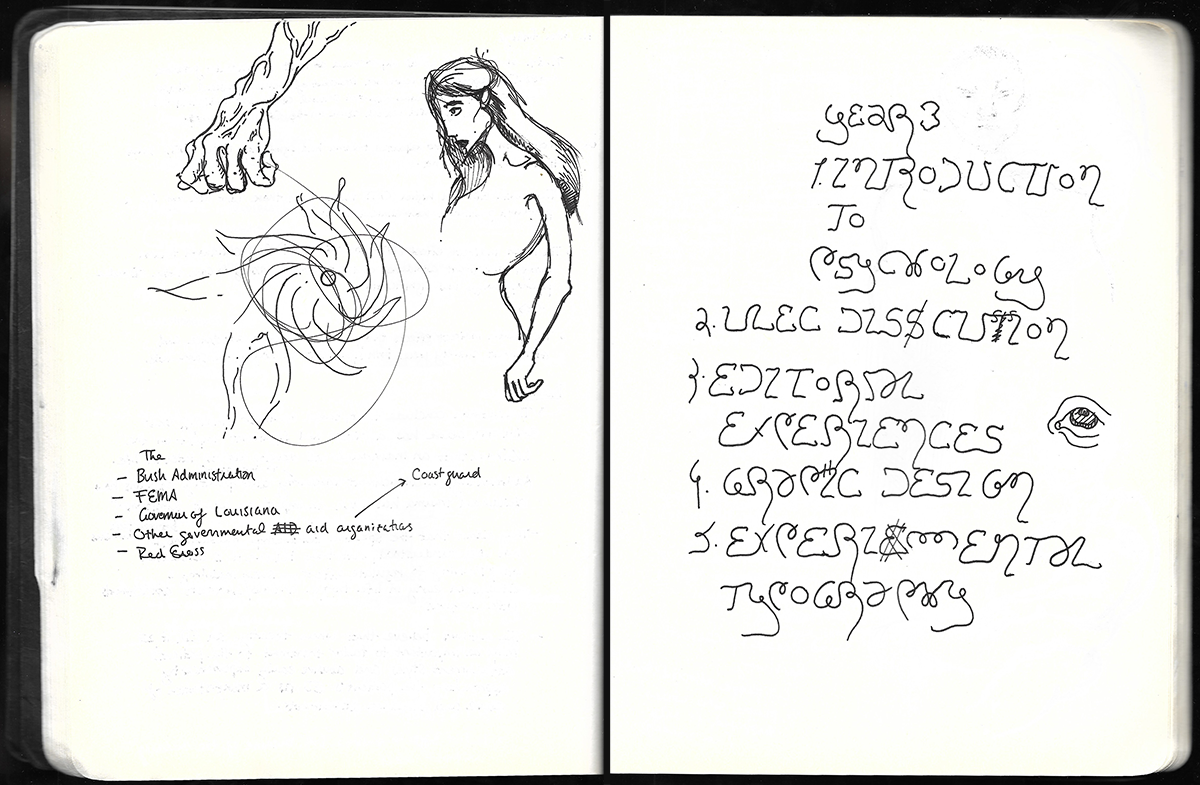 The
– Bush Administration
– FEMA
– Governer of Louisiana
– Other govermental aid organizations
Coast guard
– Red Cross
YEAR 3
1. INTRODUCTION
TO
PSYCHOLOGY
2. ULEC DISCUSSION
3. EDITORIAL
EXPERIENCES
4. GRAPHIC DESIGN
5. EXPERIMENTAL
TYPOGRAPHY